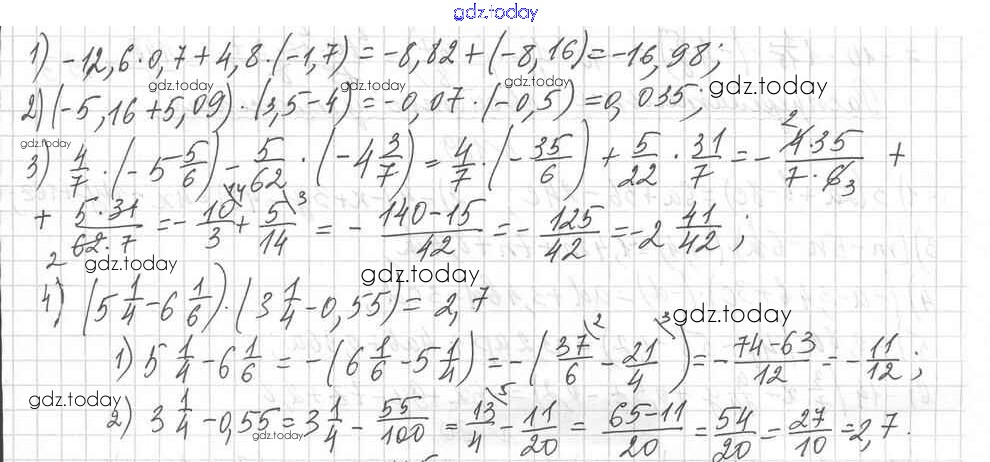 gdz.today
1) -12,6·0,7+4,8·(-1,7)=-8,82+(-8,16)=-16,98;
gdz.today gdz.today gdz.today
2) (-5,16+5,09)·(3,5-4)=-0,07·(-0,5)=0,035;
gdz.today
3) 4/7·(-5 5/6)-5/62·(-4 3/7)=4/7·(-35/6)+5/22·31/7=-(4·35)/(7·6) 2 3 +
+ (5·31)/(62·7) 2 =-10/3 14 + 5/14 3 = -(140-15)/42=-125/42=-2 41/42;
gdz.today gdz.today gdz.today
4) (5 1/4-6 1/6)·(3 1/4-0,55)=2,7
gdz.today
1) 5 1/4-6 1/6=-(6 1/6-5 1/4)=-(37/6 2 -21/4 3)=-(74-63)/12=-11/12;
gdz.today
2) 3 1/4-0,55=3 1/4-55/100=13/4 5 -11/20=(65-11)/20=54/20=27/10=2,7.
gdz.today gdz.today